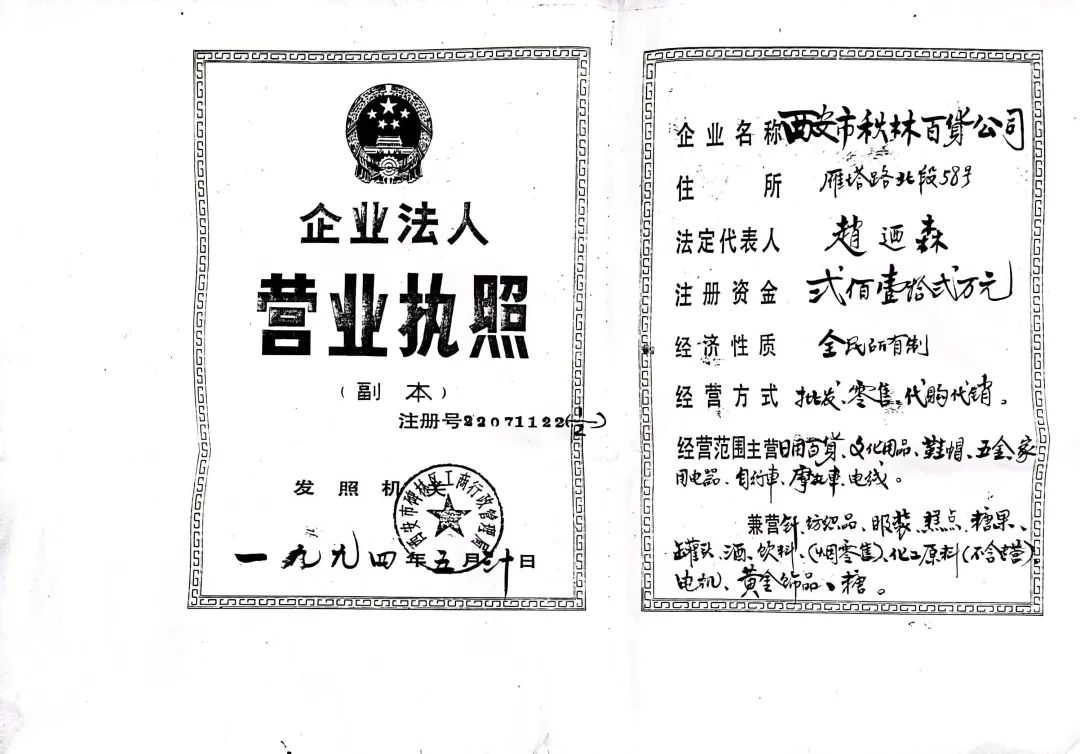 企业法人
营业执照
（副 本）
注册号22071122(1/2)
发照机关
西安市碑林区工商行政管理局
一九九四年五月三十日
企业名称 西安市秋林百货公司
住 所 雁塔路北段58号
法定代表人 趙迺森
注册资金 弍佰壹拾弍万元
经济性质 全民所有制
经营方式 批发、零售、代购代销。
经营范围主营日用百貨、文化用品、鞋帽、五金、家
用电器、自行車、摩托車、电线。
兼营针、纺织品、服装、糕点、糖果、
罐头、酒、饮料、(烟零售)、化工原料(不含专营)、
电机、黄金饰品、糖。